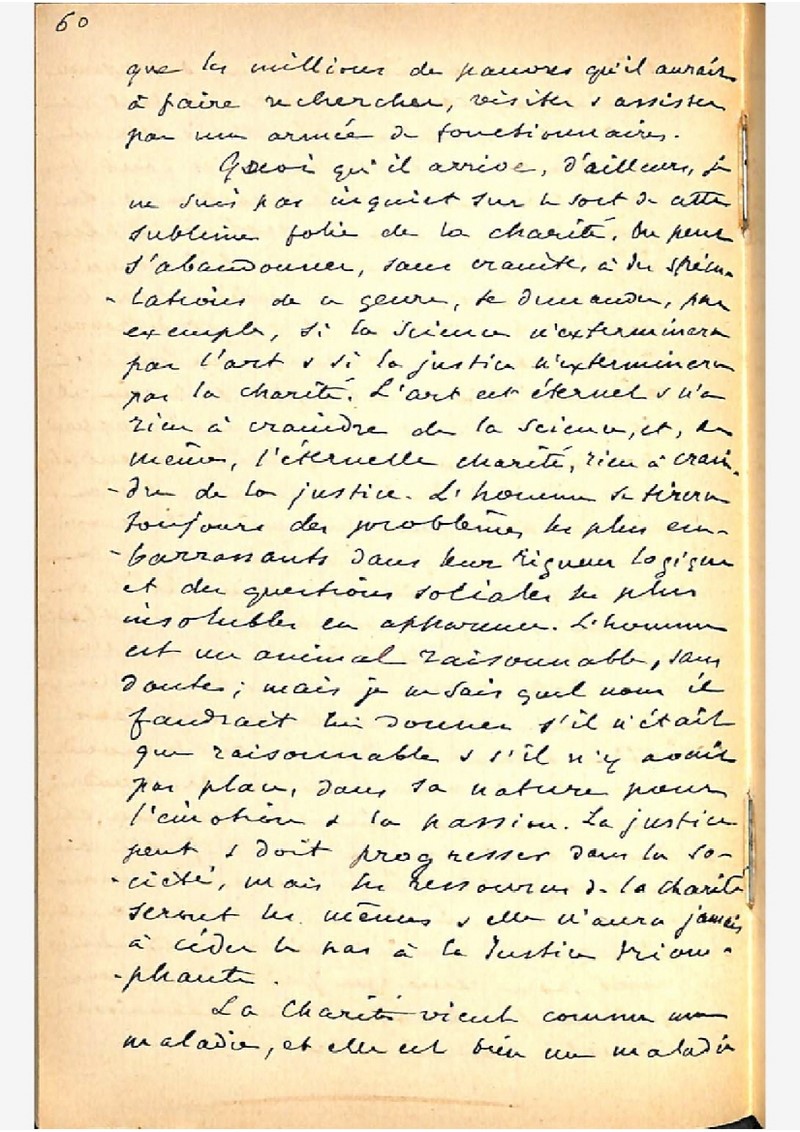 60
que les millions de pauvres qu'il aurait
à faire rechercher, visiter & assister
par une armée de fonctionnaires.
Quoi qu'il arrive, d'ailleurs, je
ne suis pas inquiet sur le sort de cette
sublime folie de la charité. On peut
s'abandonner, sans crainte, à des spécu-
-lations de ce genre, se demander, par
exemple, si la science n'exterminera
pas l'art & si la justice n'exterminera
pas la charité. L'art est éternel & n'a
rien à craindre de la science, et, de
même, l'éternelle charité, rien à crain-
-dre de la justice. L'homme se tirera
toujours des problèmes les plus em-
-barrassants dans leur rigueur logique
et des questions sociales les plus
insolubles en apparence. L'homme
est un animal raisonnable, sans
doute ; mais je ne sais quel nom il
faudrait lui donner s'il n'était
que raisonnable & s'il n'y avait
pas place, dans sa nature pour
l'émotion & la passion. La justice
peut & doit progresser dans la so-
-ciété, mais les ressources de la charité
seront les mêmes & elle n'aura jamais
à céder le pas à la Justice triom-
-phante.
La Charité vient comme une
maladie, et elle est bien une maladie